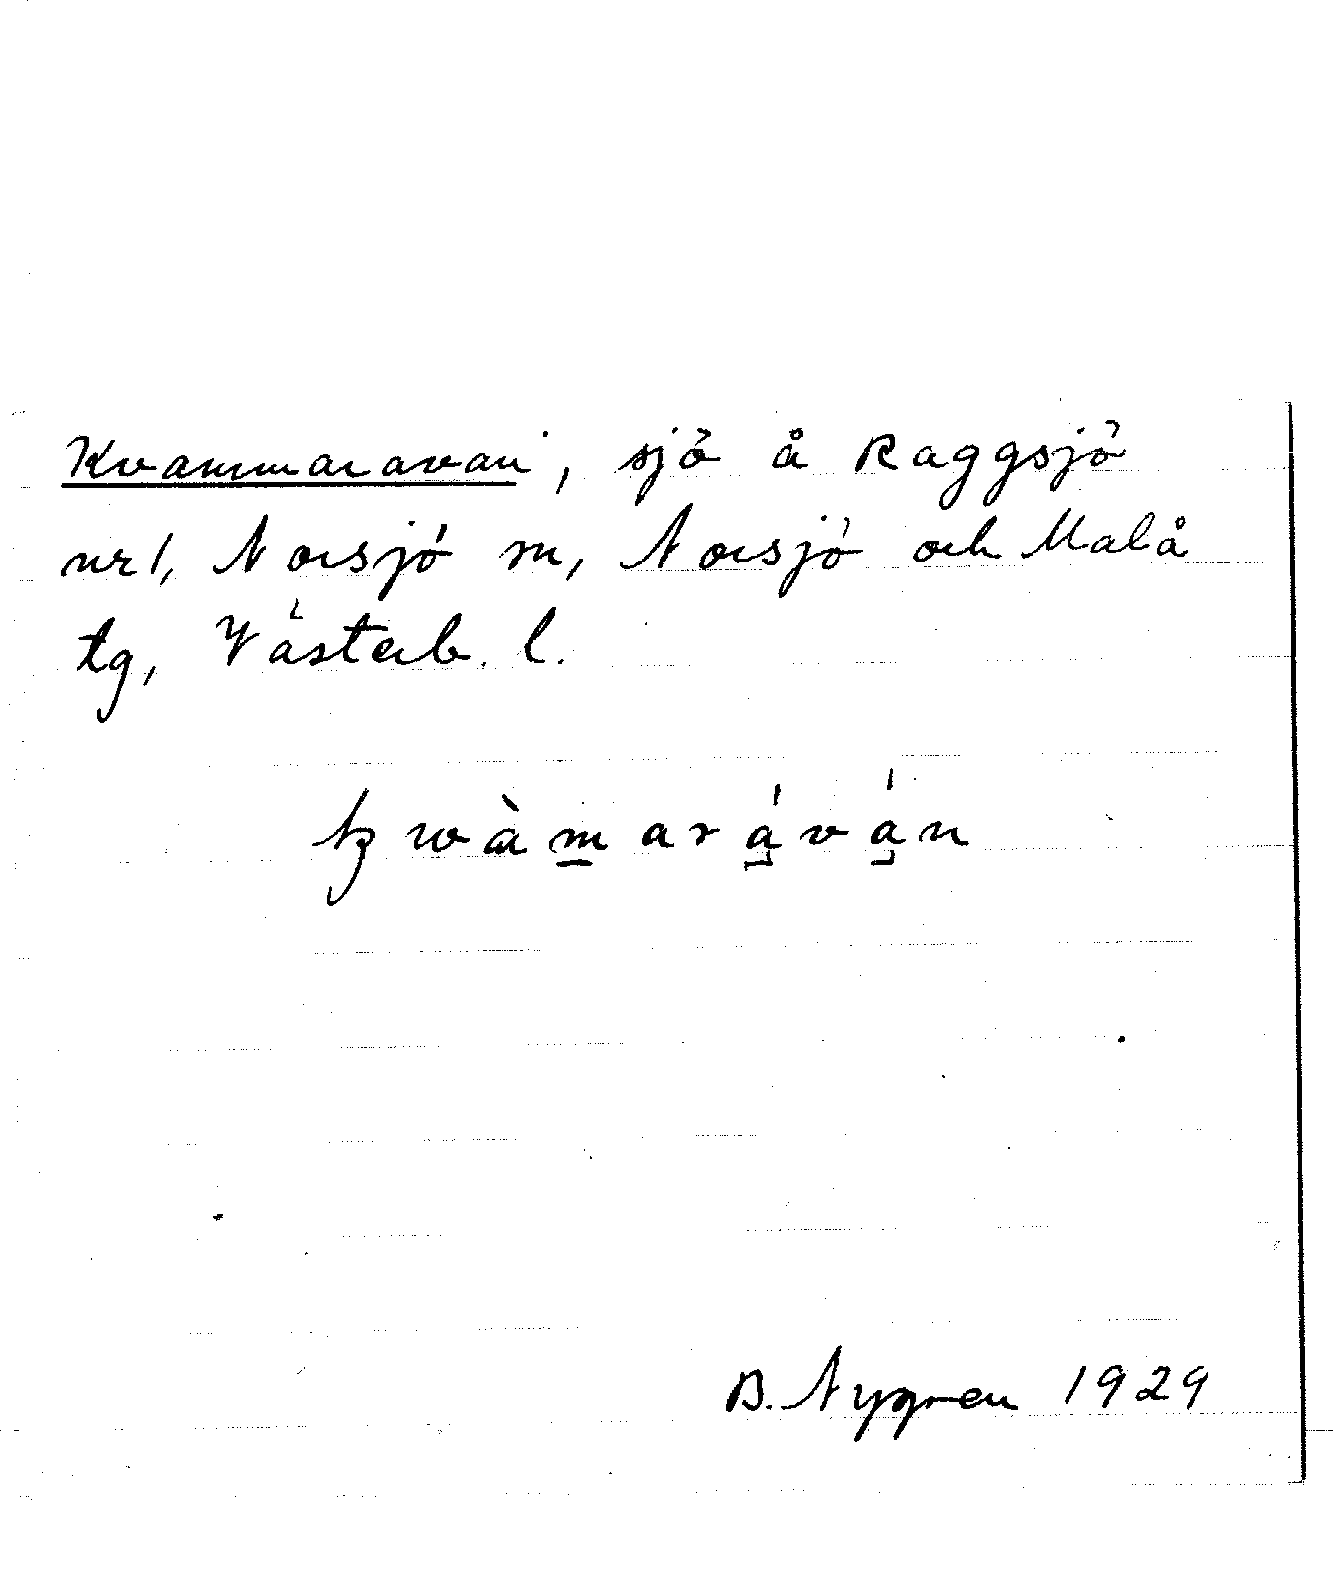 Kvammaravan, sjö å Raggsjö
nr 1, Norsjö sn, Norsjö och Malå
tg, Västerb. l.
kwàmaráván
B. Nygren 1929